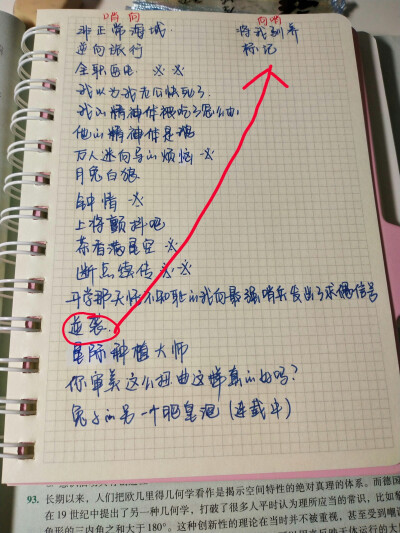 哨向
向哨
非正常海域
将我别弃
逆向旅行
标记
全职医生 ※ ※
我以为我老公快死了
我的精神体被吃了怎么办
他的精神体是猫
万人迷向导的烦恼 ※
月兔白狼
钟情 ※
上将颤抖吧
茶香满星空 ※
断点续传 ※ ※
开学那天恬不知耻的我向最强哨兵发出了求偶信号
逆袭.
星际种植大师
你审美这么扭曲这样真的好吗?
兔子的另一个肥皂泡(连载中)
93. 长期以来,人们把欧几里得几何学看作是揭示空间特性的绝对真理的体系。而德国
在 19 世纪中提出了另一种几何学,打破了很多人平时认为理所应当的常识,比如
角形的三内角之和大于 180°。这种创新性的理论在当时并不被重视,甚至受到嘲